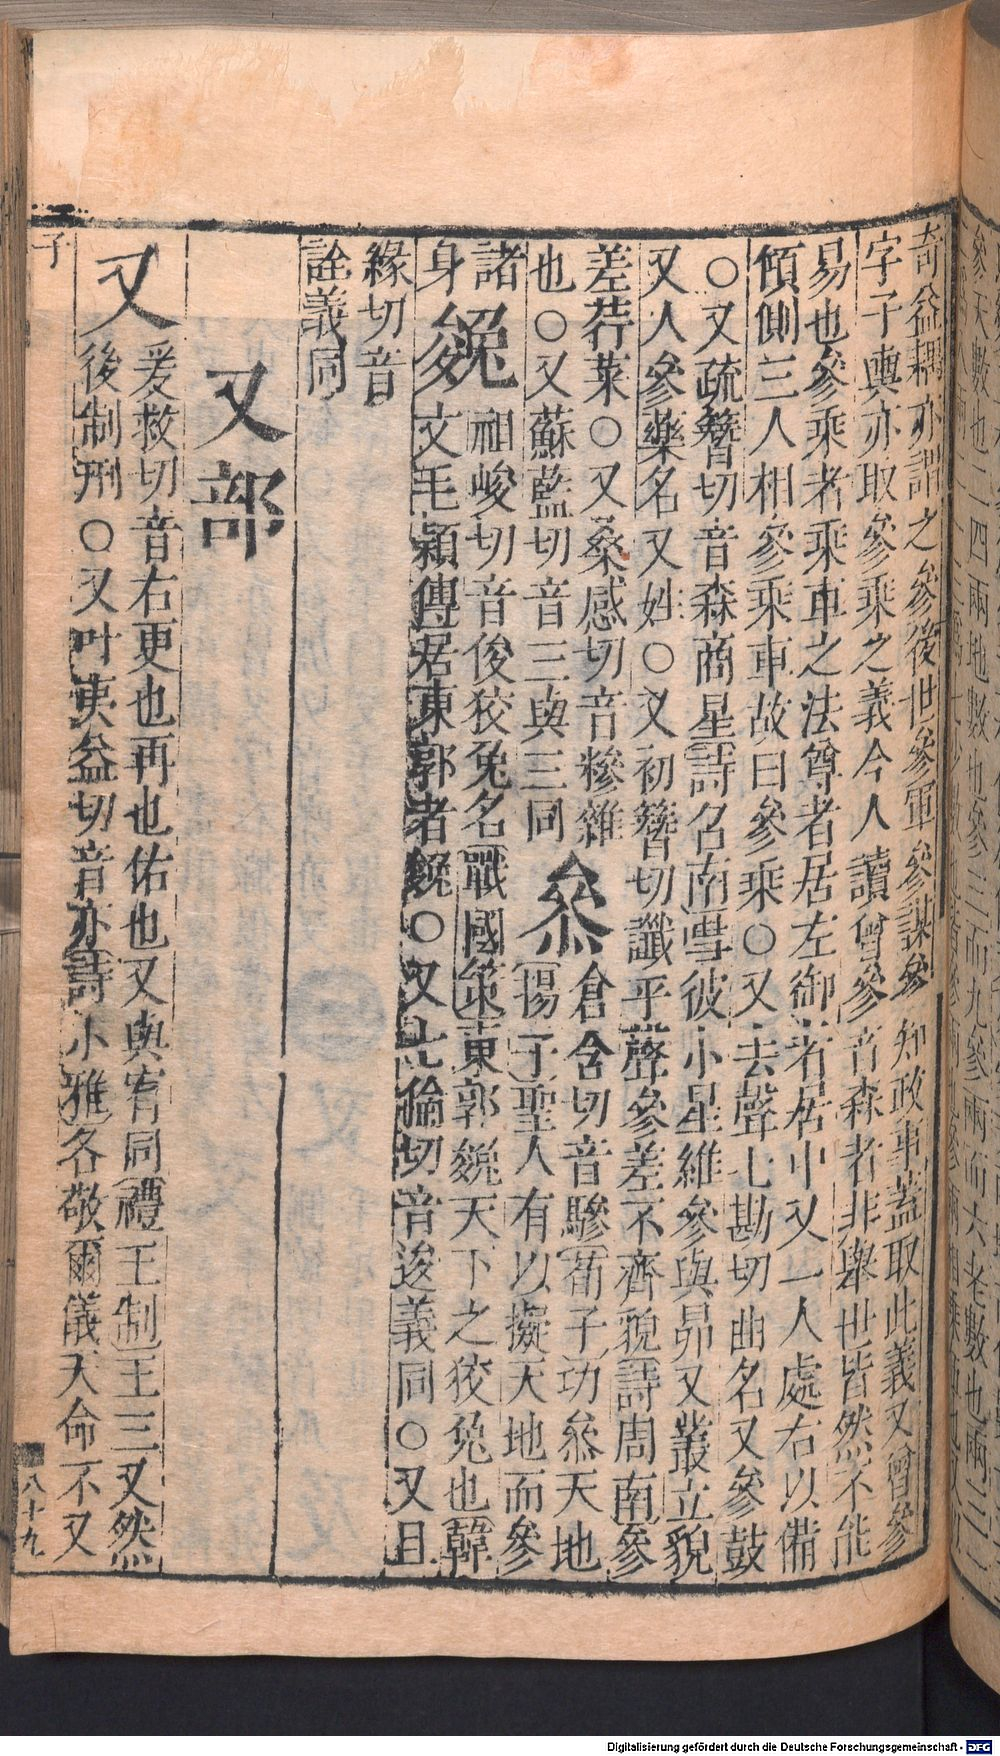 奇益耦亦謂之參後世參軍參謀參知政事蓋取此義又曾參
字子輿亦取參乘之義今人讀曾參音森者非舉世皆然不能
易也參乘者乘車之法尊者居左御者居中又一人處右以備
傾側三人相參乘車故曰參乘○又去聲七勘切曲名又參鼓
○又疏簪切音森商星詩召南嘒彼小星維參與昴又叢立貌
又人參藥名又姓○又初簪切讖平聲參差不齊貌詩周南參
差荇菜○又桑感切音糝雜
也○又蘇藍切音三與三同
叅
倉含切音驂荀子功叅天地
揚子聖人有以擬天地而參
諸
身
㕙
祖峻切音俊狡兔名戰國策東郭㕙天下之狡兔也韓
文毛穎傳居東郭者㕙○又七倫切音逡義同○又且
緣切音
詮義同
又部
又
爰救切音右更也再也佑也又與宥同禮王制王三又然
後制刑○又叶夷益切音亦詩小雅各敬爾儀天命不又
子
八十九
Digitalisierung gefördert durch die Deutsche Forschungsgemeinschaft - DFG